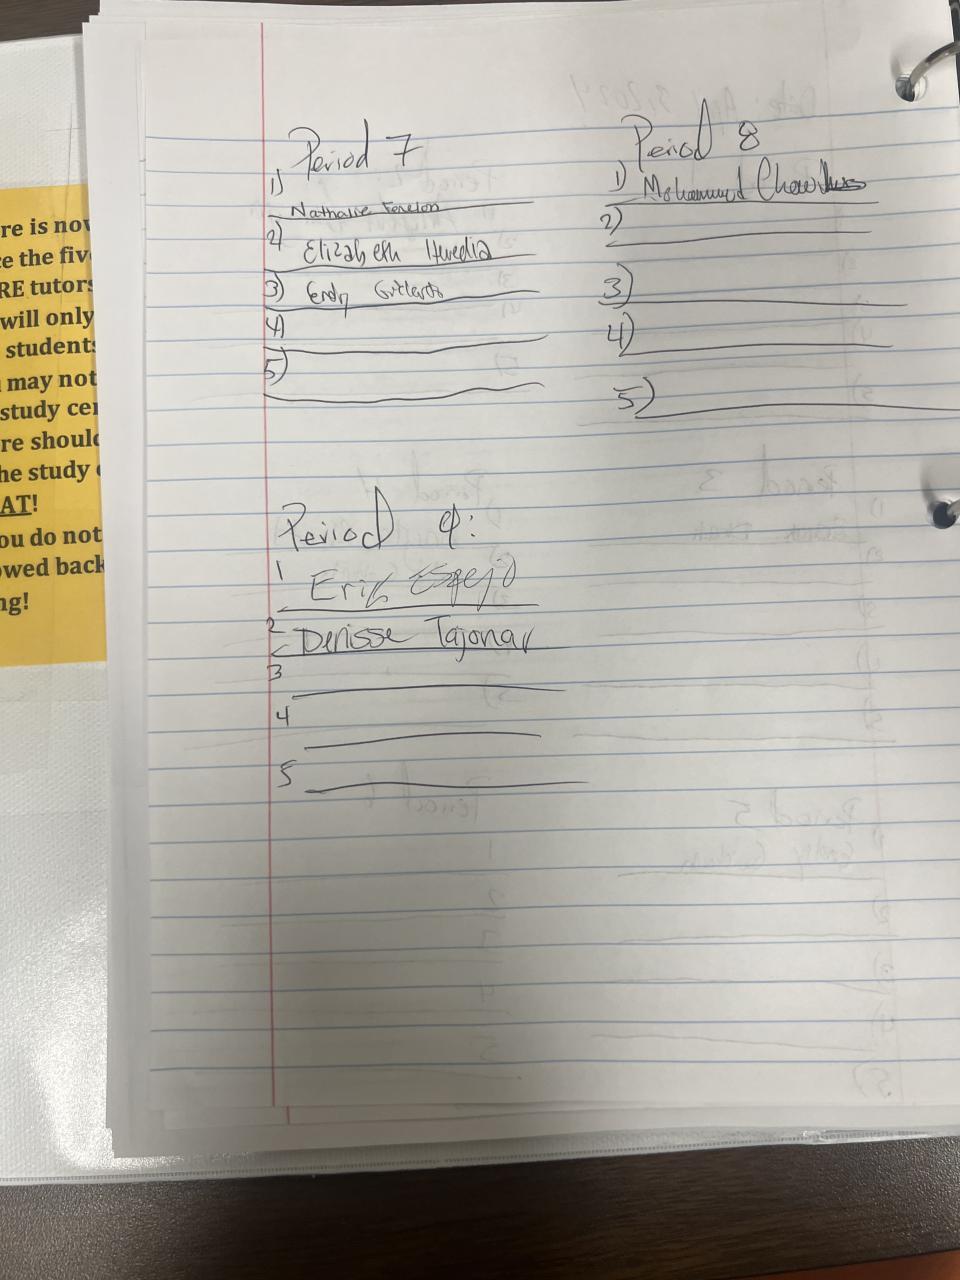 re is nov
e the fiv
RE tutors
will only
students
may not
study cer
re should
he study
AT!
ou do not
owed back
ng!
Period 7
1) Nathalie
2) Elizabeth Heredia
3)
4)
5)
Period 8
1) Mohammed Chowdhury
2)
3)
4)
5)
Period 9:
1 Erik Espejo
2 Denisse Tajonar
3
4
5